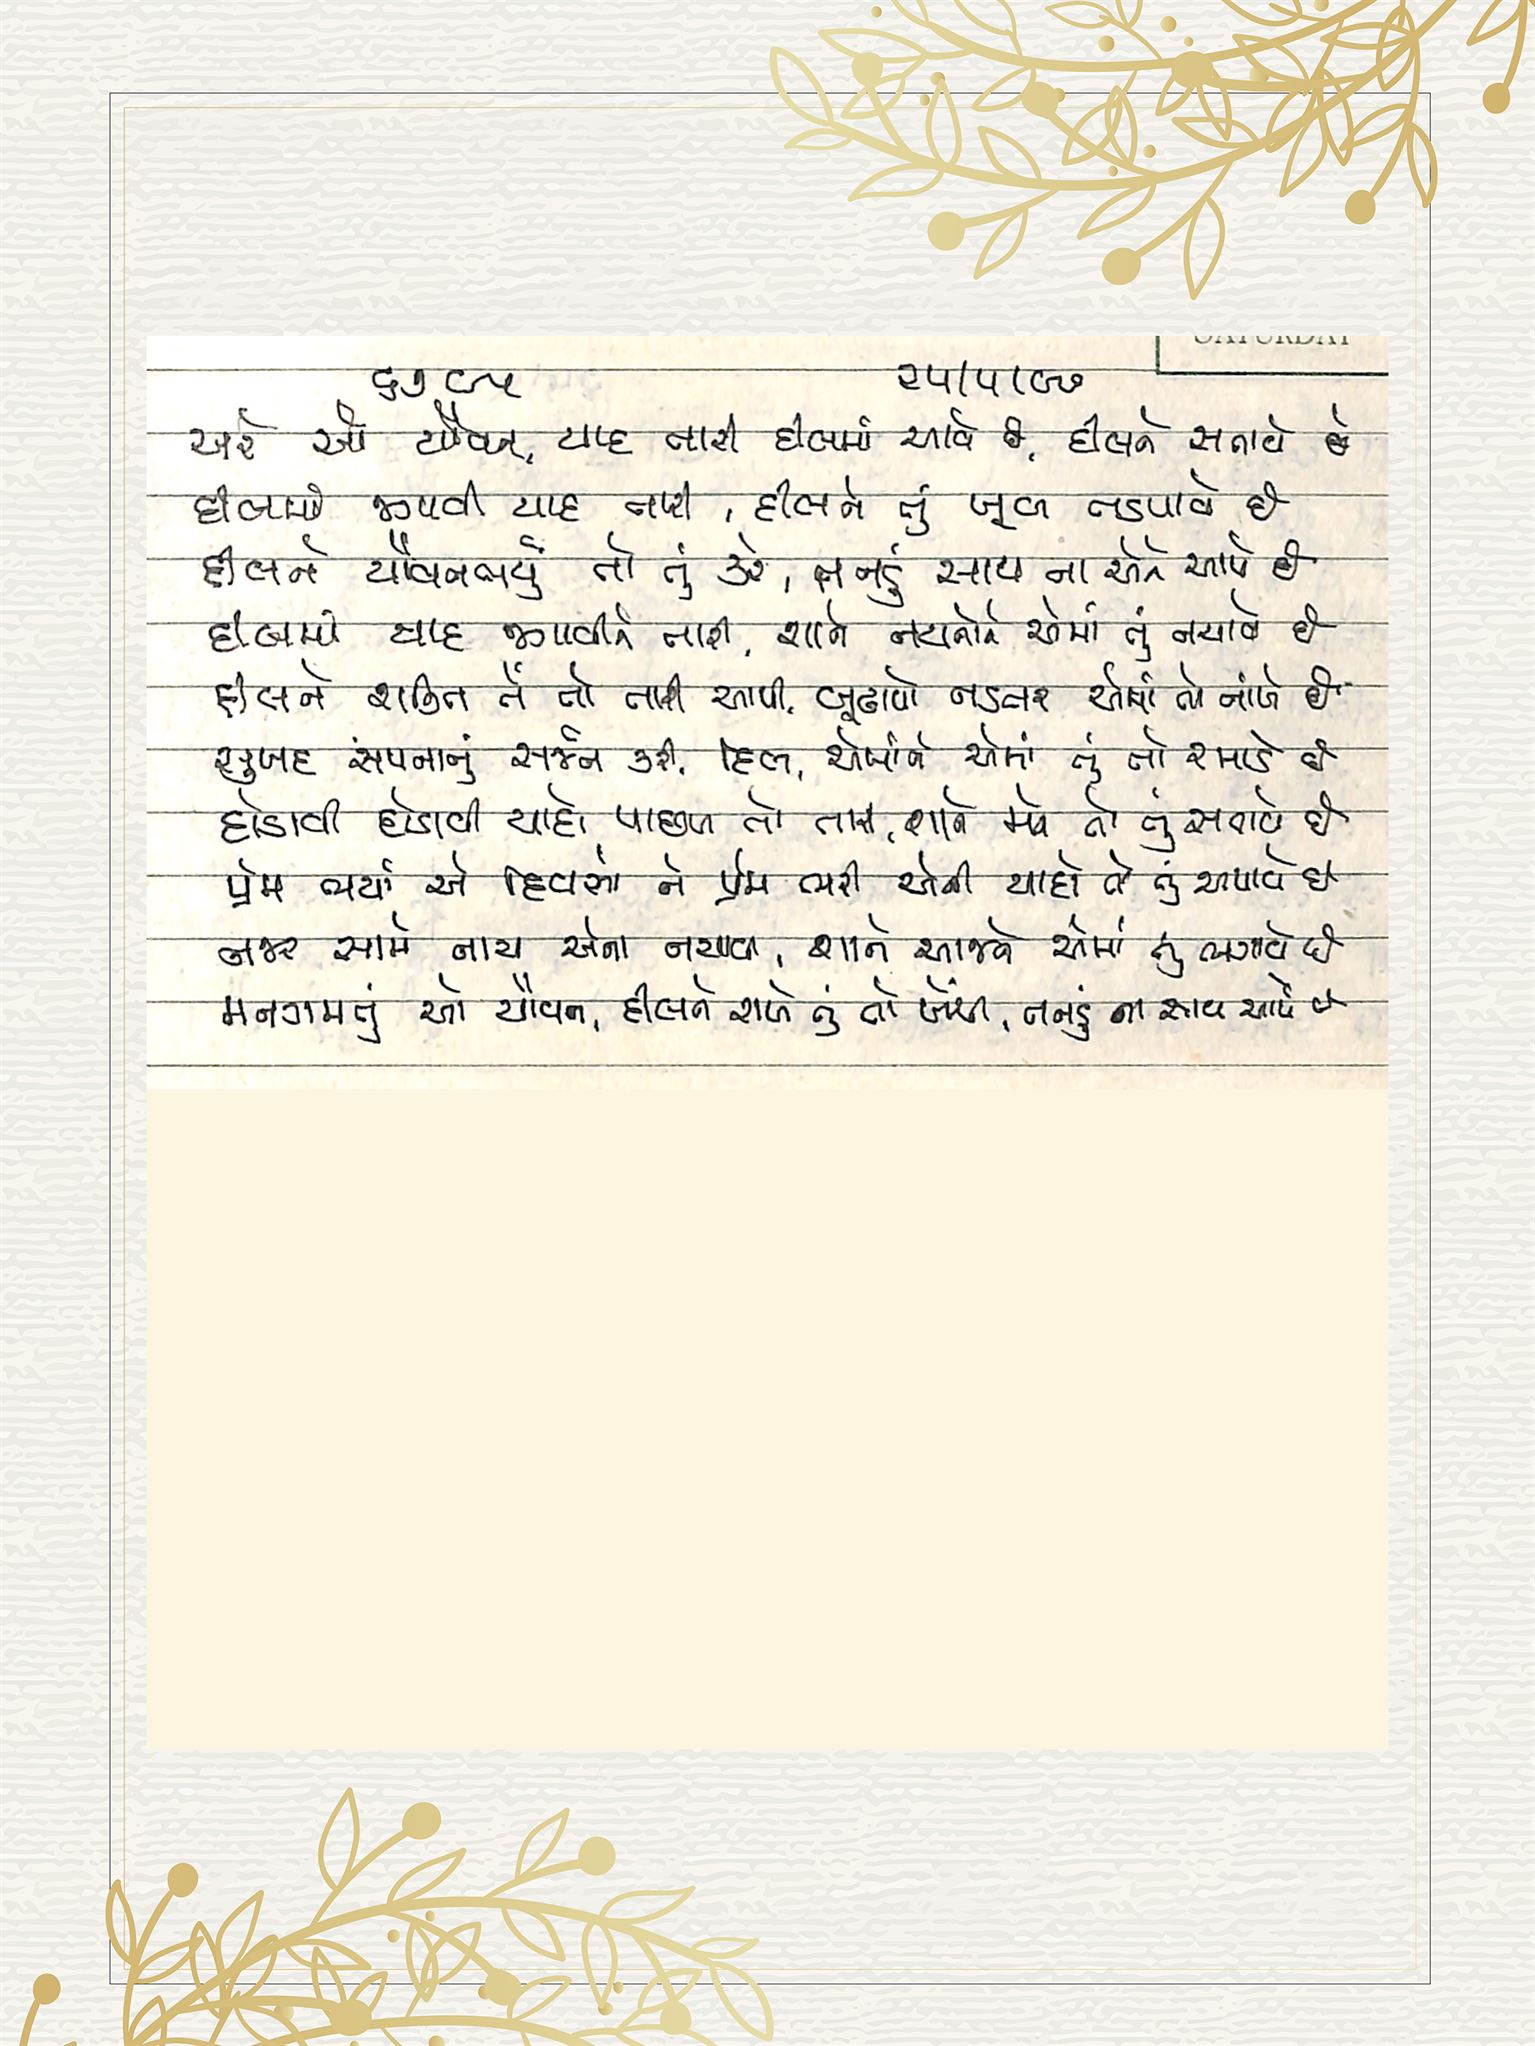 SATURDAY
૬૭૯૫ ૨૫/૫/૯૭
અરે ઓ યૌવન, યાદ તારી દીલમાં આવે છે, દીલને સતાવે છે
દીલમાં જગાવી યાદ તારી, દીલને તું ખૂબ તડપાવે છે
દીલને યૌવનભર્યું તો તું કરે, તનડું સાથ ના એને આપે છે
દીલમાં યાદ જગાવીને તારી, શાને નયનોને એમાં તું નચાવે છે
દીલને શક્તિ તેં તો તારી આપી, બૂઢાપો નડતર એમાં તો નાંખે છે
સુખદ સંપનાનું સર્જન કરી, દિલ, એમાં તું તો રમાડે છે
દોડાવી દોડાવી યાદો પાછળ તો તારી, શાને મને તો તું સતાવે છે
પ્રેમ ભર્યા એ દિવસો ને પ્રેમ ભરી એની યાદો તો તું અપાવે છે
નજર સામે નાચ એના નચાવી, શાને આજને એમાં તું ભગાવે છે
મનગમતું ઓ યૌવન, દીલને રાખે તું તો ખેંચી, તનડું ના સાથ આપે છે